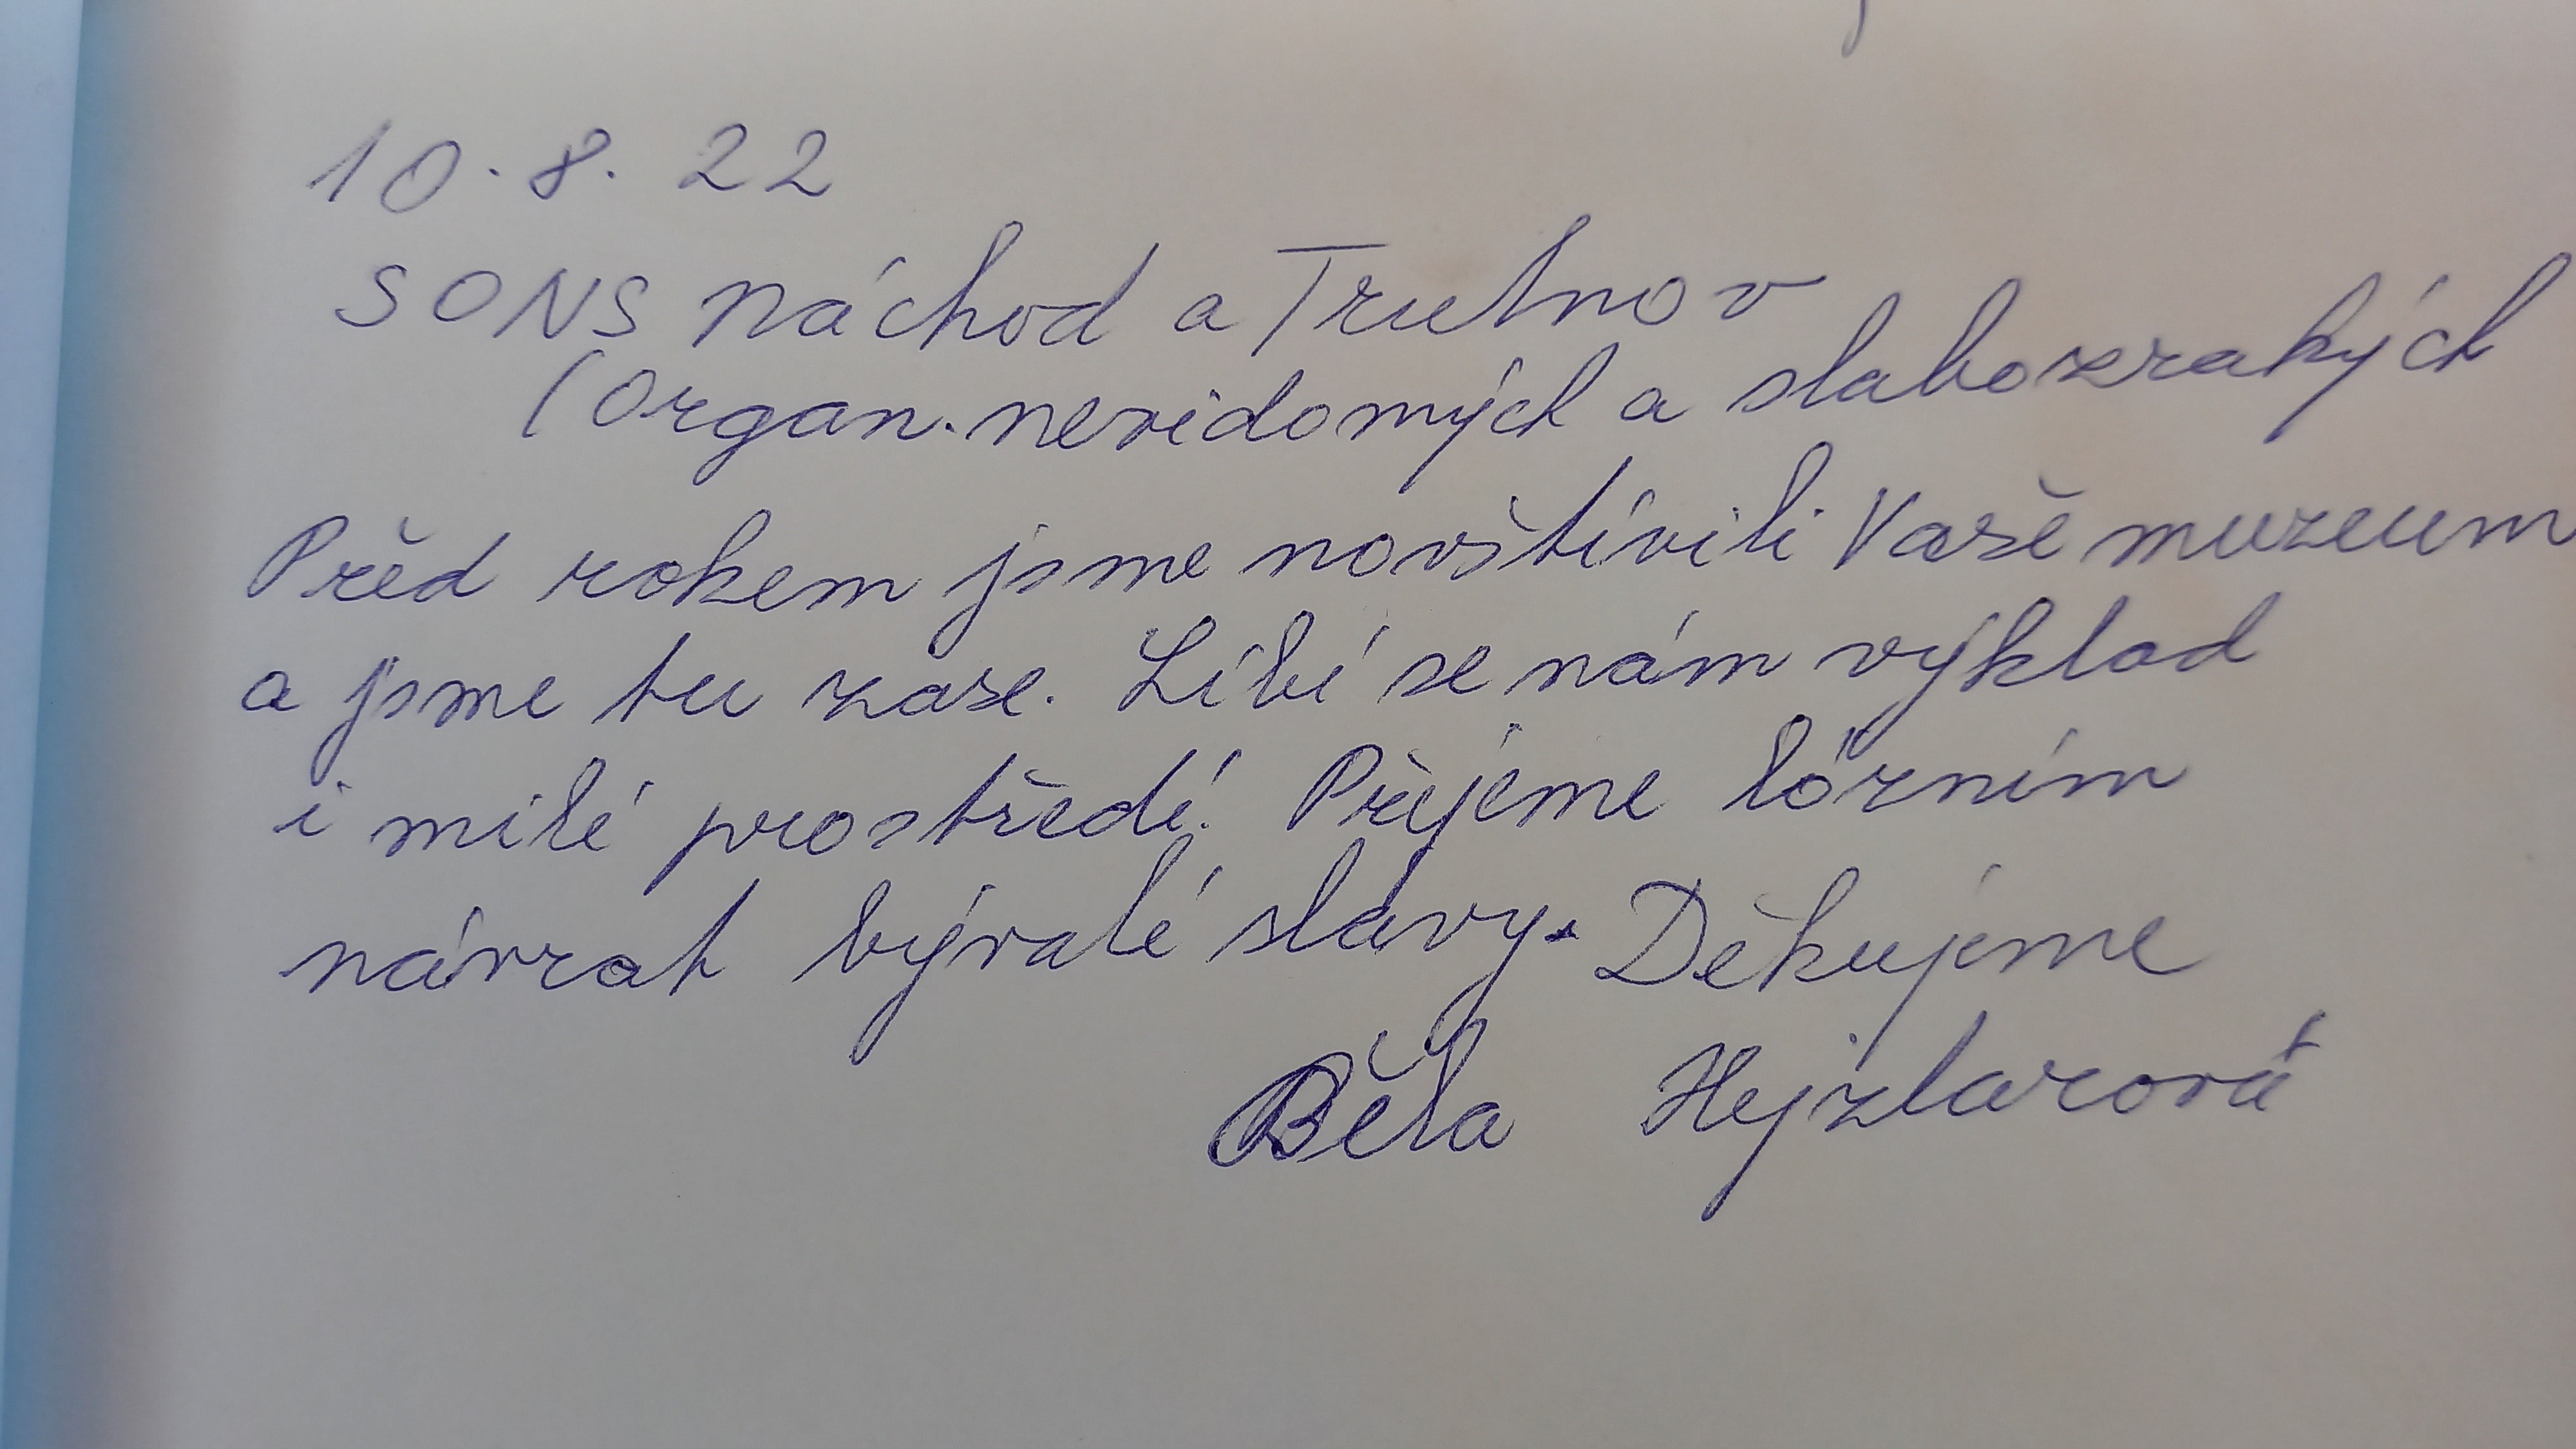 10. 8. 22
SONS Náchod a Trutnov
(Organ. nevidomých a slabozrakých
Před rokem jsme navštívili Vaše muzeum
a jsme tu zase. Líbí se nám výklad
i milé prostředí. Přejeme lázním
návrat bývalé slávy. Děkujeme
Běla Hejzlarová